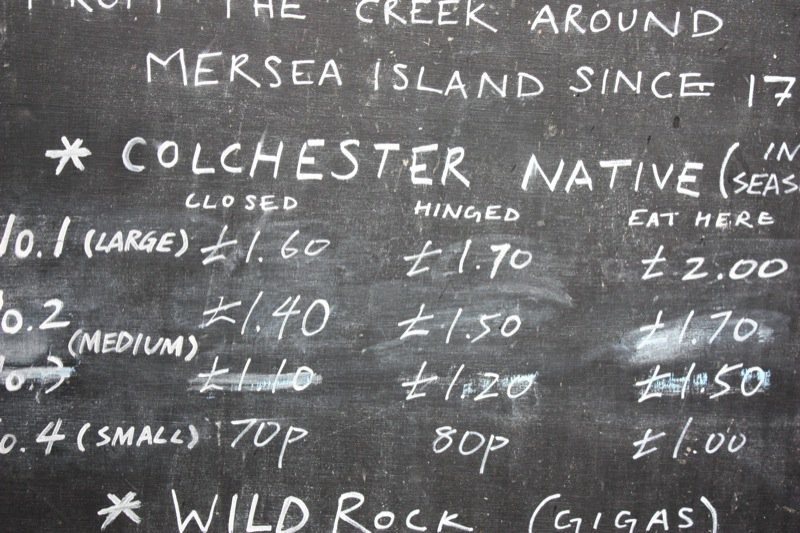 FROM THE CREEK AROUND
MERSEA ISLAND SINCE 17
* COLCHESTER NATIVE (IN SEAS
CLOSED HINGED EAT HERE
No.1 (LARGE) £1.60 £1.70 £2.00
No.2 £1.40 £1.50 £1.70
(MEDIUM)
No.3 £1.10 £1.20 £1.50
No.4 (SMALL) 70p 80p £1.00
* WILD ROCK (GIGAS)